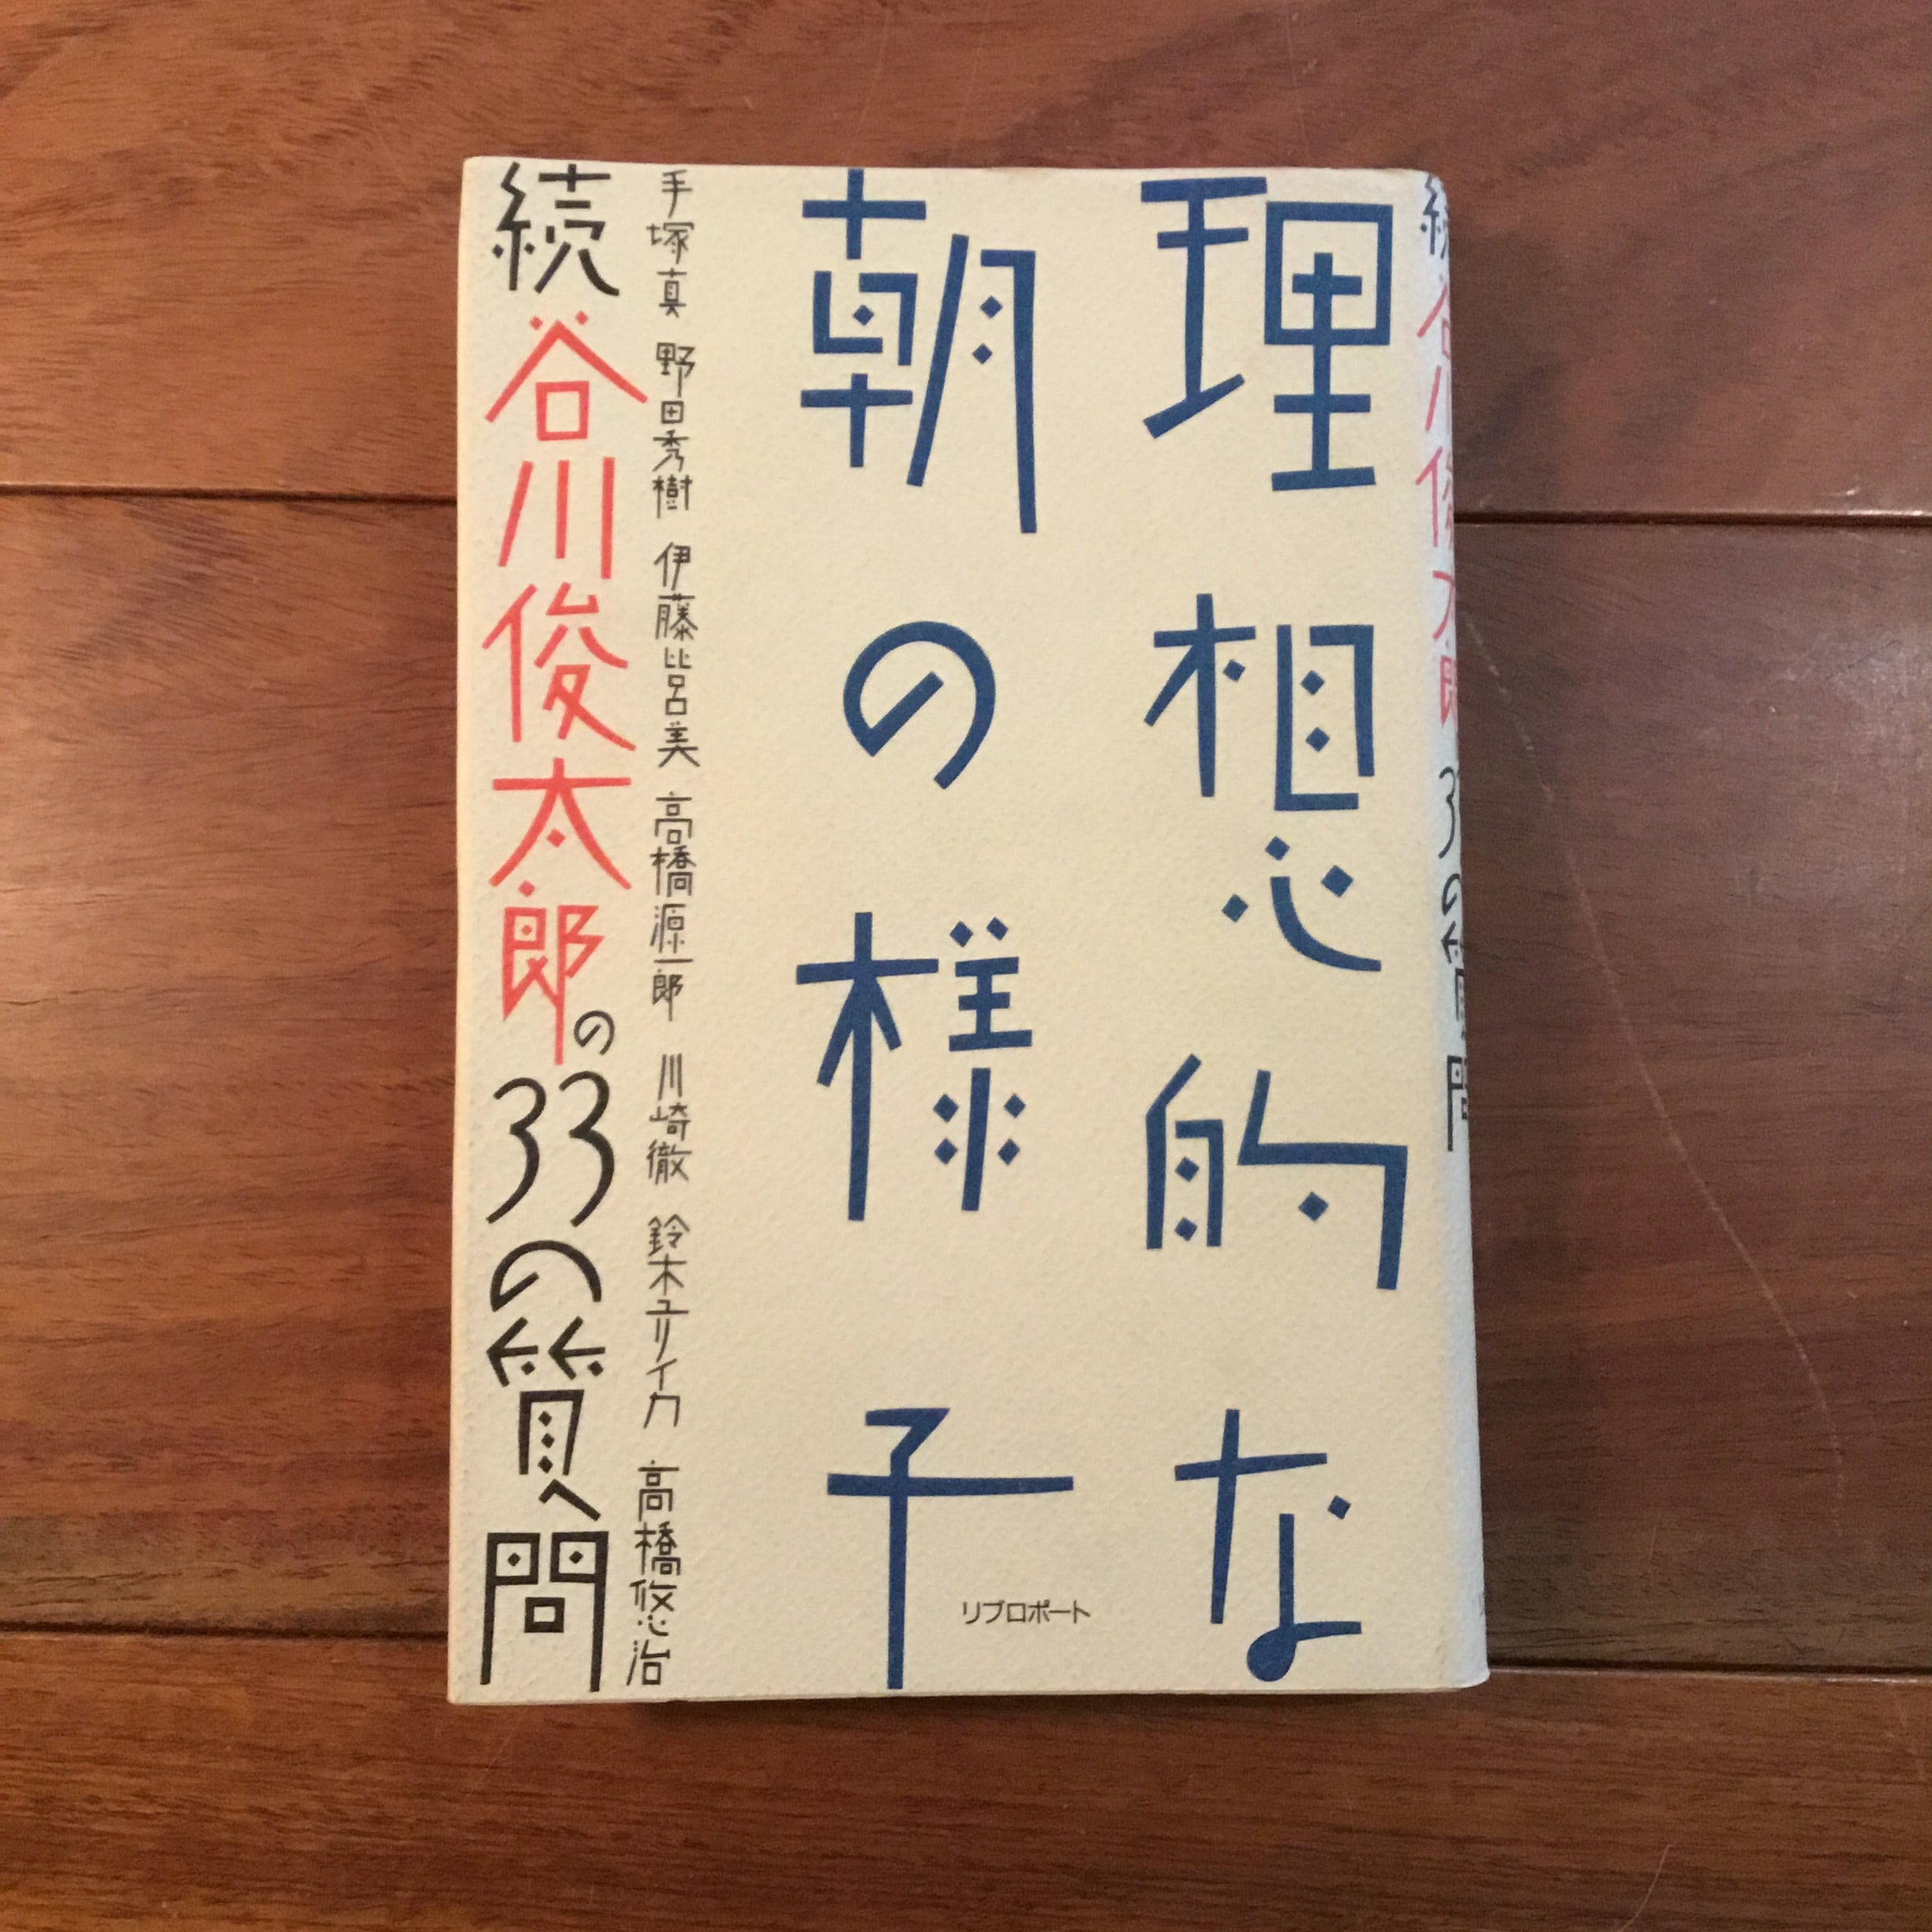 理想的な
朝の様子
手塚真 野田秀樹 伊藤比呂美 高橋源一郎 川崎徹 鈴木ユリイカ 高橋悠治
続谷川俊太郎の33の質問
リブロポート
続 谷川俊太郎 33の質問